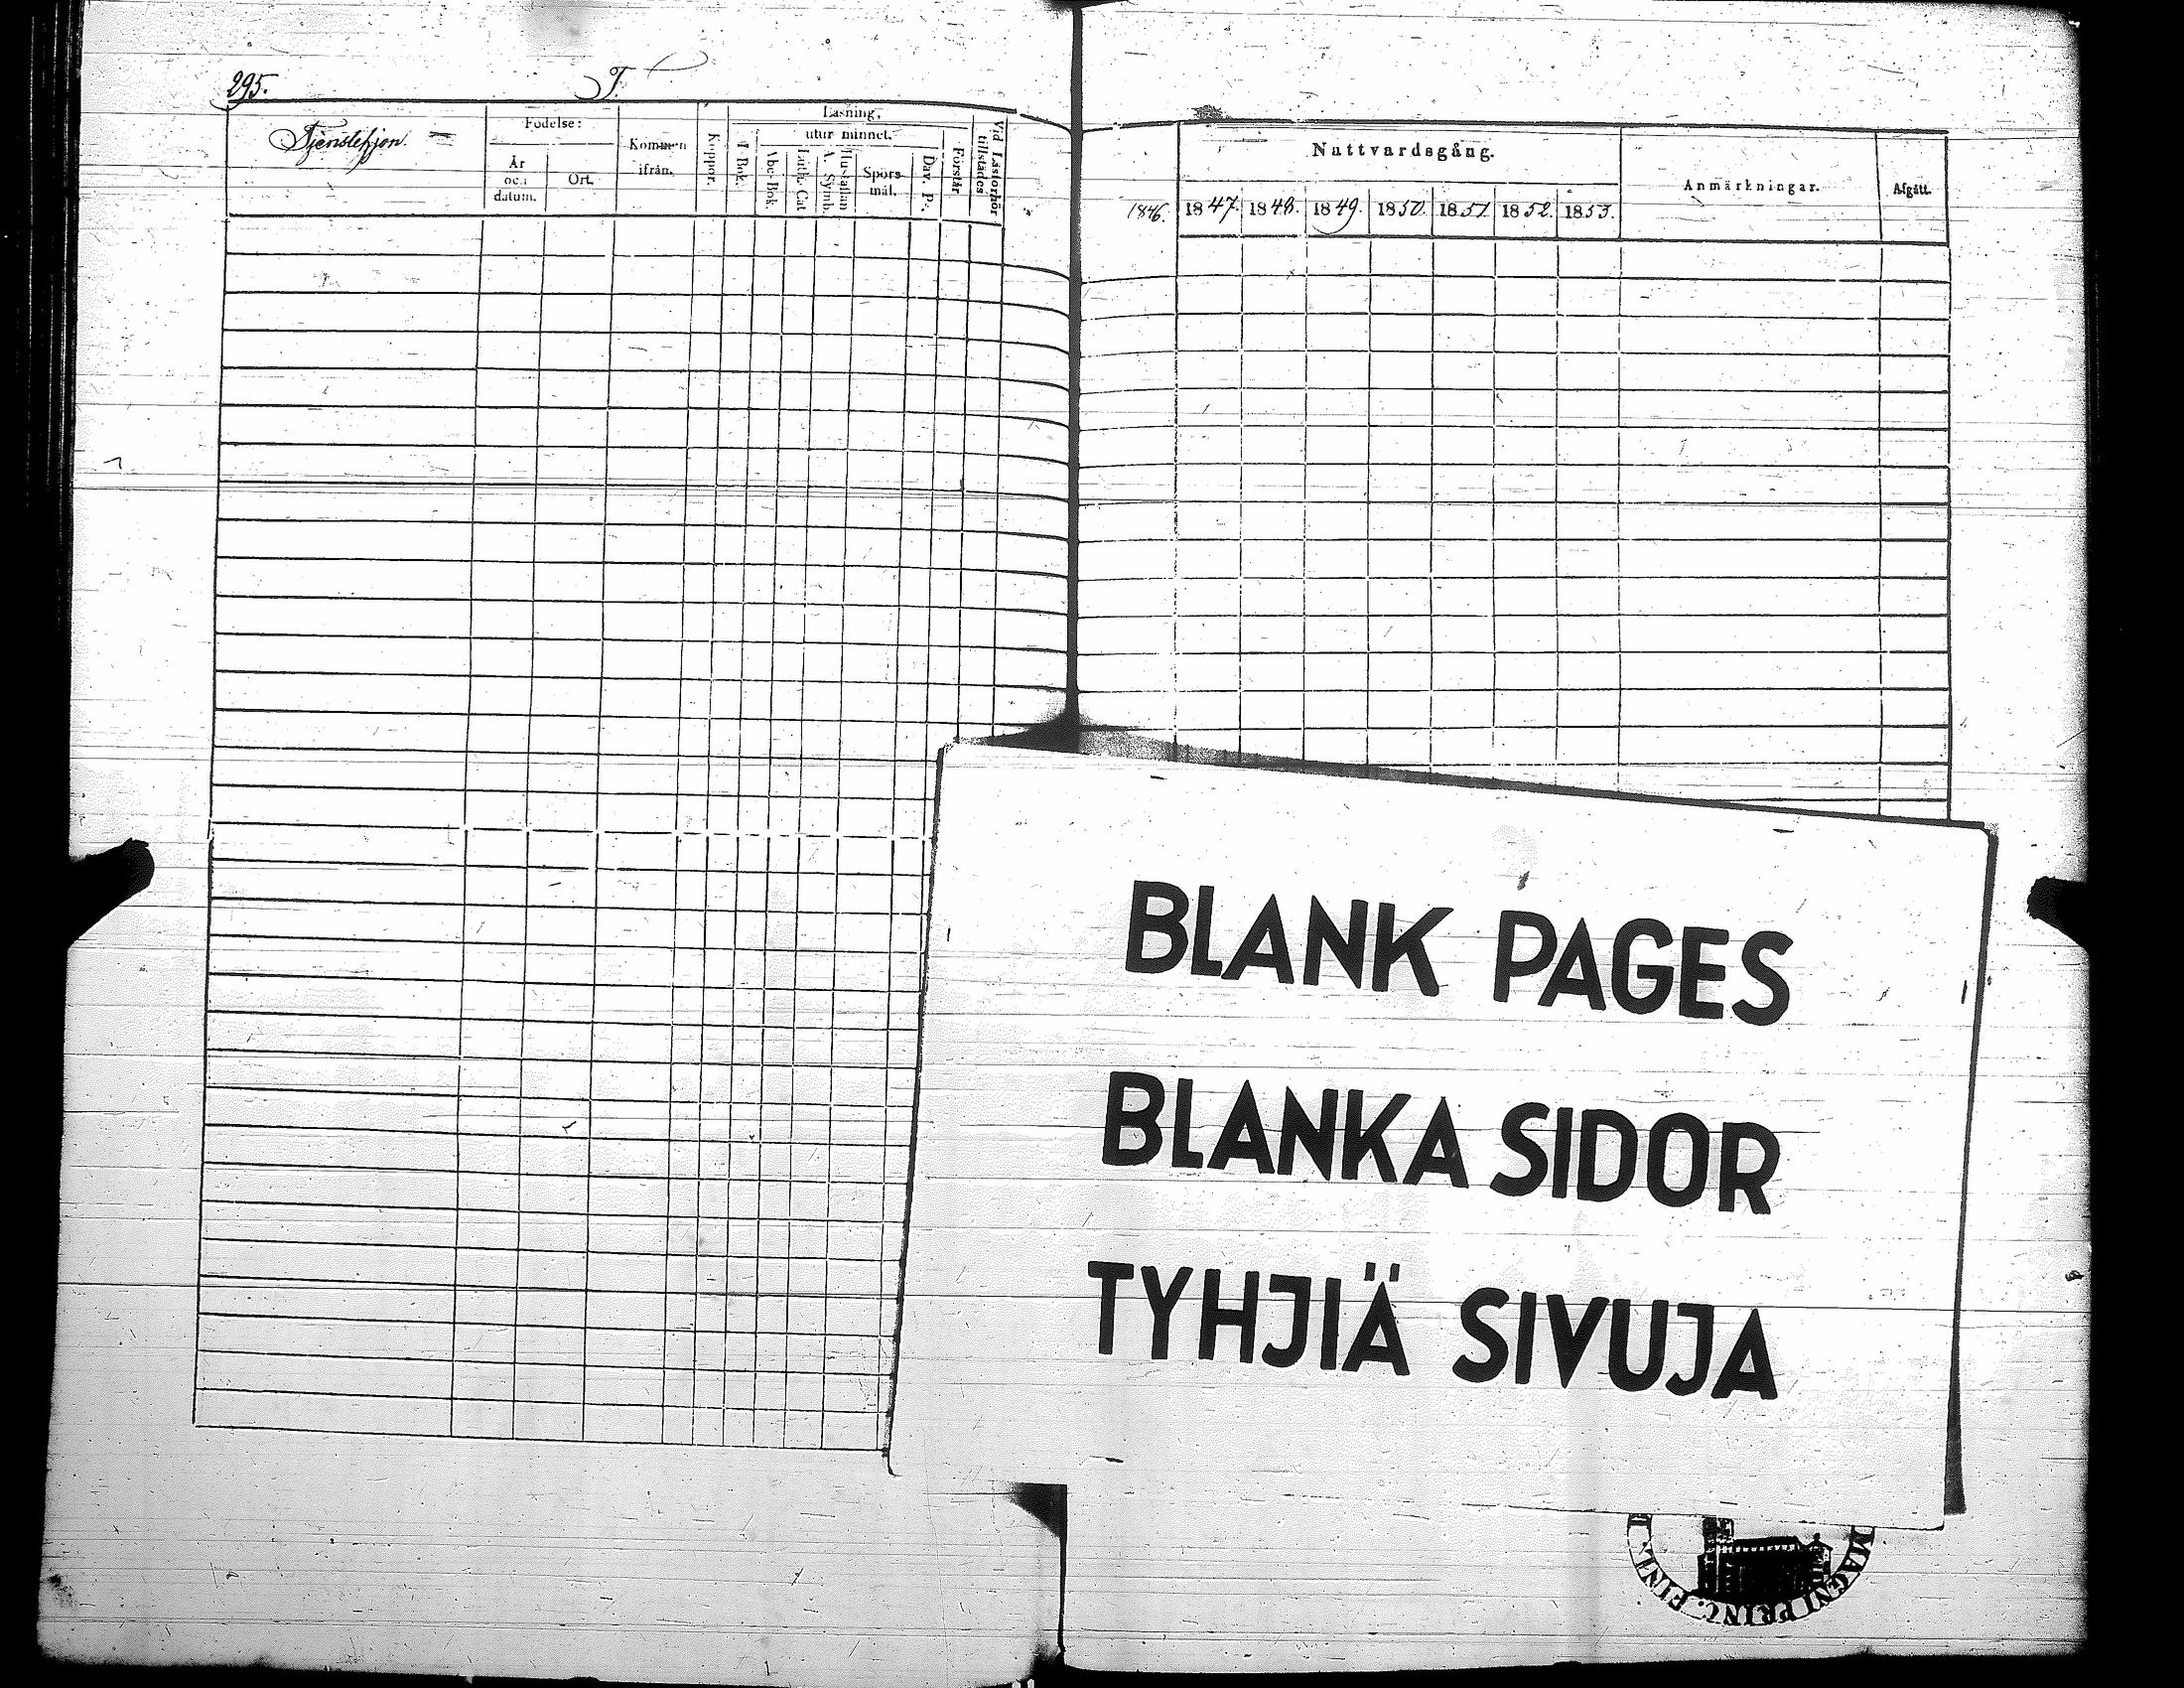 295. T.
Tjenstehjon.
Födelse:
År och datum.
Ort.
Kommen ifrån.
Koppor.
Läsning,
utur minnet.
I Bok.
Abc-Bok.
Luth. Cat
Hustaflan
A. Symb.
Spörsmål.
Dav. Ps.
Förstår
Vid Läsförhör tillstädes
Nattvardsgång.
1846. 1847. 1848. 1849. 1850. 1851. 1852. 1853.
Anmärkningar.
Afgått.
BLANK PAGES
BLANKA SIDOR
TYHJIÄ SIVUJA
MAGNI PRINC. FINL.